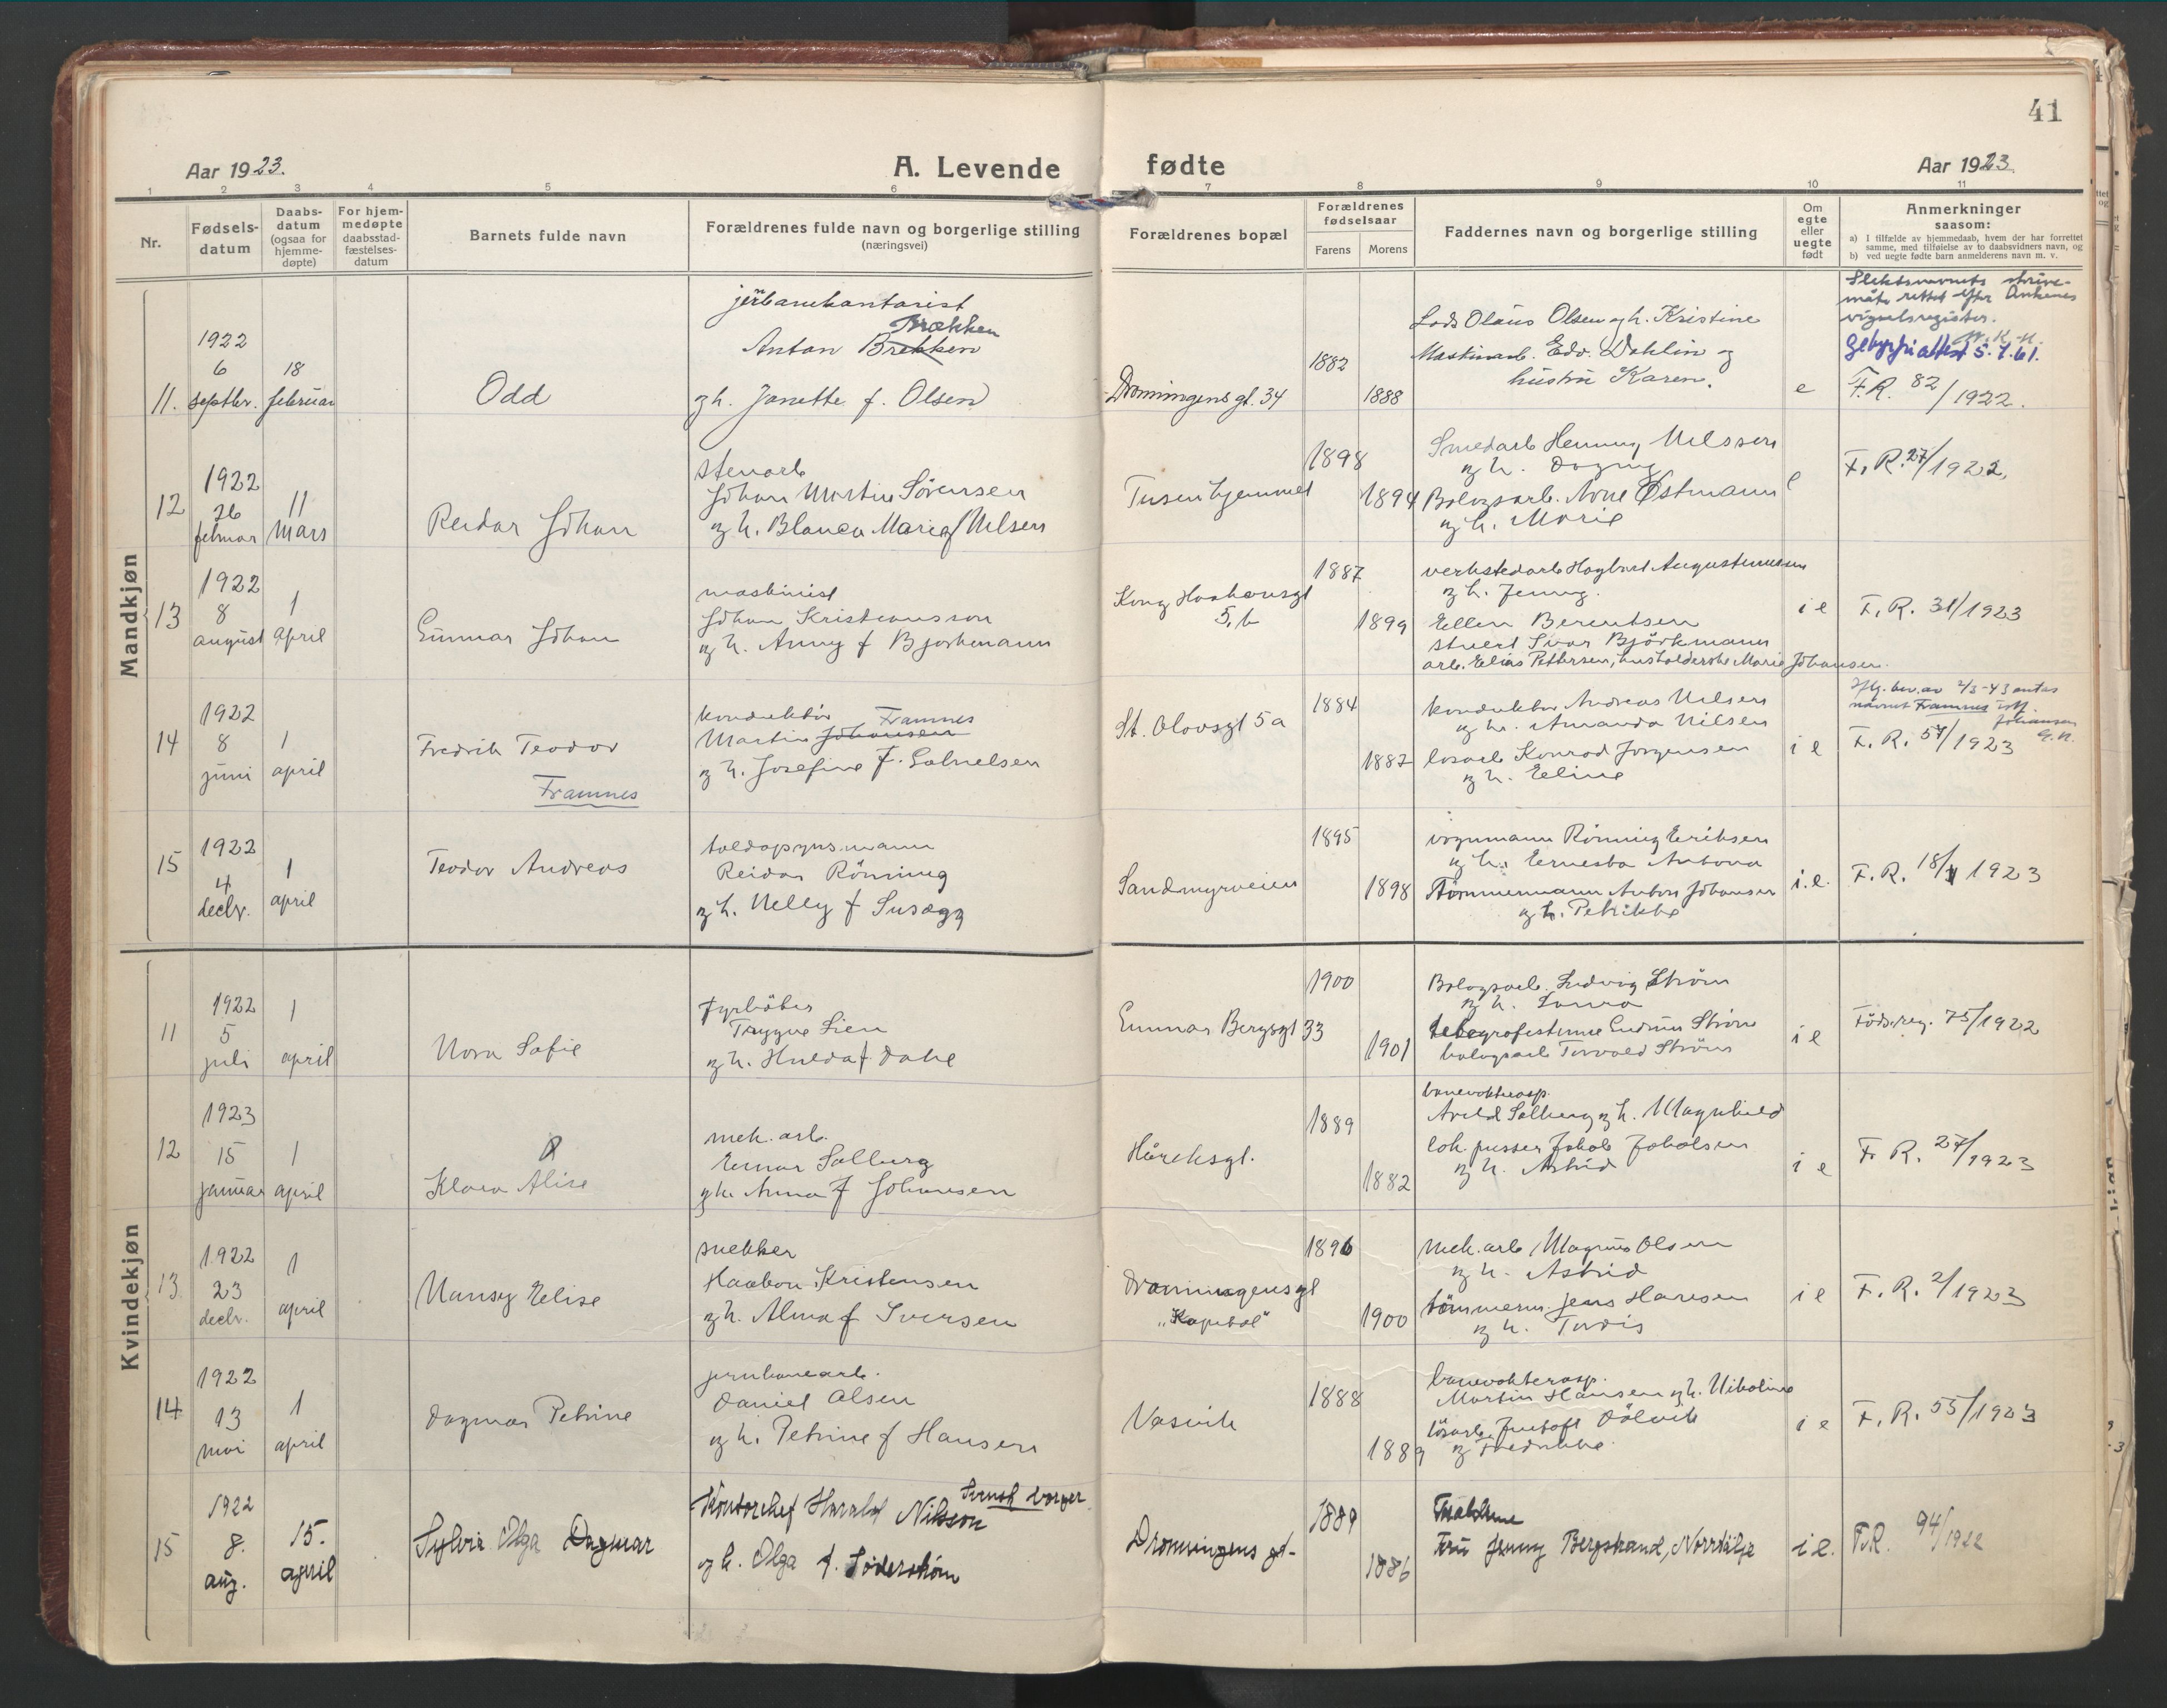 41
Aar 1923.
A. Levende fødte
Aar 1923.
1 2 3 4 5 6 7 8 9 10 11
Nr.
Fødsels-
datum
Daabs-
datum
(ogsaa for
hjemme-
døpte)
For hjem-
medøpte
daabsstad-
fæstelses-
datum
Barnets fulde navn
Forældrenes fulde navn og borgerlige stilling
(næringsvei)
Forældrenes bopæl
Forældrenes
fødselsaar
Farens
Morens
Faddernes navn og borgerlige stilling
Om
egte
eller
uegte
født
Anmerkninger
saasom:
a) I tilfælde av hjemmedaab, hvem der har forrettet
samme, med tilføielse av to daabsvidners navn, og
b) ved uegte fødte barn anmelderens navn m. v.
Mandkjøn
11.
1922
6
septbr.
18
februar
Odd
jernbanekontorist
Brækken
Anton Brekken
og h. Janette f. Olsen
Dronningens gt. 34
1882
1888
Lods Olaus Olsen og h. Kristine
Maskinarb. Edv. Dahlin og
hustru Karen.
e
Slektsnavnets skrive-
måte rettet efter Ankenes
vigselsregister.
Gebyrfri attest 5.7.61.
F.R. 82/1922.
12
1922
26
februar
11
mars
Reidar Johan
stenarb
Johan Martin Sørensen
og h. Blanca Marie f Nilsen
Tusenhjemmet
1898
1894
Smedarb Henning Nilssen
og h. Dagny
Bolagsarb. Arne Østmann
og h. Marie
e
F. R. 27/1922.
13
1922
8
august
1
april
Gunnar Johan
maskinist
Johan Kristiansson
og h. Anny f Bjørkmann
Kong Haakonsgt
5, b
1887
1899
verkstedarb Hagbart Augustinussen
og h. Jenny.
Ellen Berentsen
stuert Ivar Björkmann
arb. Elias Pettersen, husholderske Marie Johansen.
i e
F. R. 31/1923
14
1922
8
juni
1
april
Fredrik Teodor
Framnes
konduktør Framnes
Martin Johansen
og h. Josefine f. Gabrielsen
St. Olavsgt 5a
1884
1887
konduktør Andreas Nilsen
og h. Amanda Nilsen
losarb Konrad Jørgensen
og h. Eline
i e
Iflg. bev. av 2/3-43 antas
navnet Framnes istf.
Johansen
F. R. 57/1923
15
1922
4
decbr.
1
april
Teodor Andreas
toldopsynsmann
Reidar Rönning
og h. Nelly f Susægg
Sandmyrveien
1895
1898
vognmann Rönning Eriksen
og h. Ernesta Antona
Tömmermann Anton Johansen
og h. Petrikke
i. e.
F. R. 18/1923
Kvindekjøn
11
1922
5
juli
1
april
Nora Sofie
fyrböter
Trygve Lien
og h. Hulda f Dahl
Gunnar Bergsgt 33
1900
1901
Bolagsarb. Ludvig Ström
og h. Laura
telegrafistinne Gudrun Ström
bolagsarb Torvald Ström
i e
Föds.reg. 75/1922
12
1923
15
januar
1
april
Klara Alise
mek. arb.
Einar Solberg
og h. Anna f Johansen
Håreksgt.
1889
1882
banevokterasp.
Arild Solberg og h. Magnhild
lok. pusser Jakob Jakobsen
og h. Astrid
i e
F. R. 27/1923
13
1922
23
decbr.
1
april
Nansy Elise
snekker
Haakon Kristensen
og h. Alma f Iversen
Dronningensgt
"Kapitol"
1896
1900
mek. arb Magnus Olsen
og h. Astrid
tömmerm. Jens Hansen
og h. Tordis
i e
F. R. 2/1923
14
1922
13
mai
1
april
Dagmar Petrine
jernbanearb.
Daniel Olsen
og h. Petrine f Hansen
Vasvik
1888
1889
banevokterasp.
Martin Hansen og h. Nikoline
lösarb. Dölvik
og Fredrikke.
i e
F. R. 55/1923
15
1922
8.
aug.
15.
april
Sylvia Olga Dagmar
Svensk borger
Kontorchef Harald Nilsson
og h. Olga f. Söderström
Dronningens gt.
1889
1886
Fru Jenny Bergstrand, Norrtälje
i e.
F.R. 94/1922